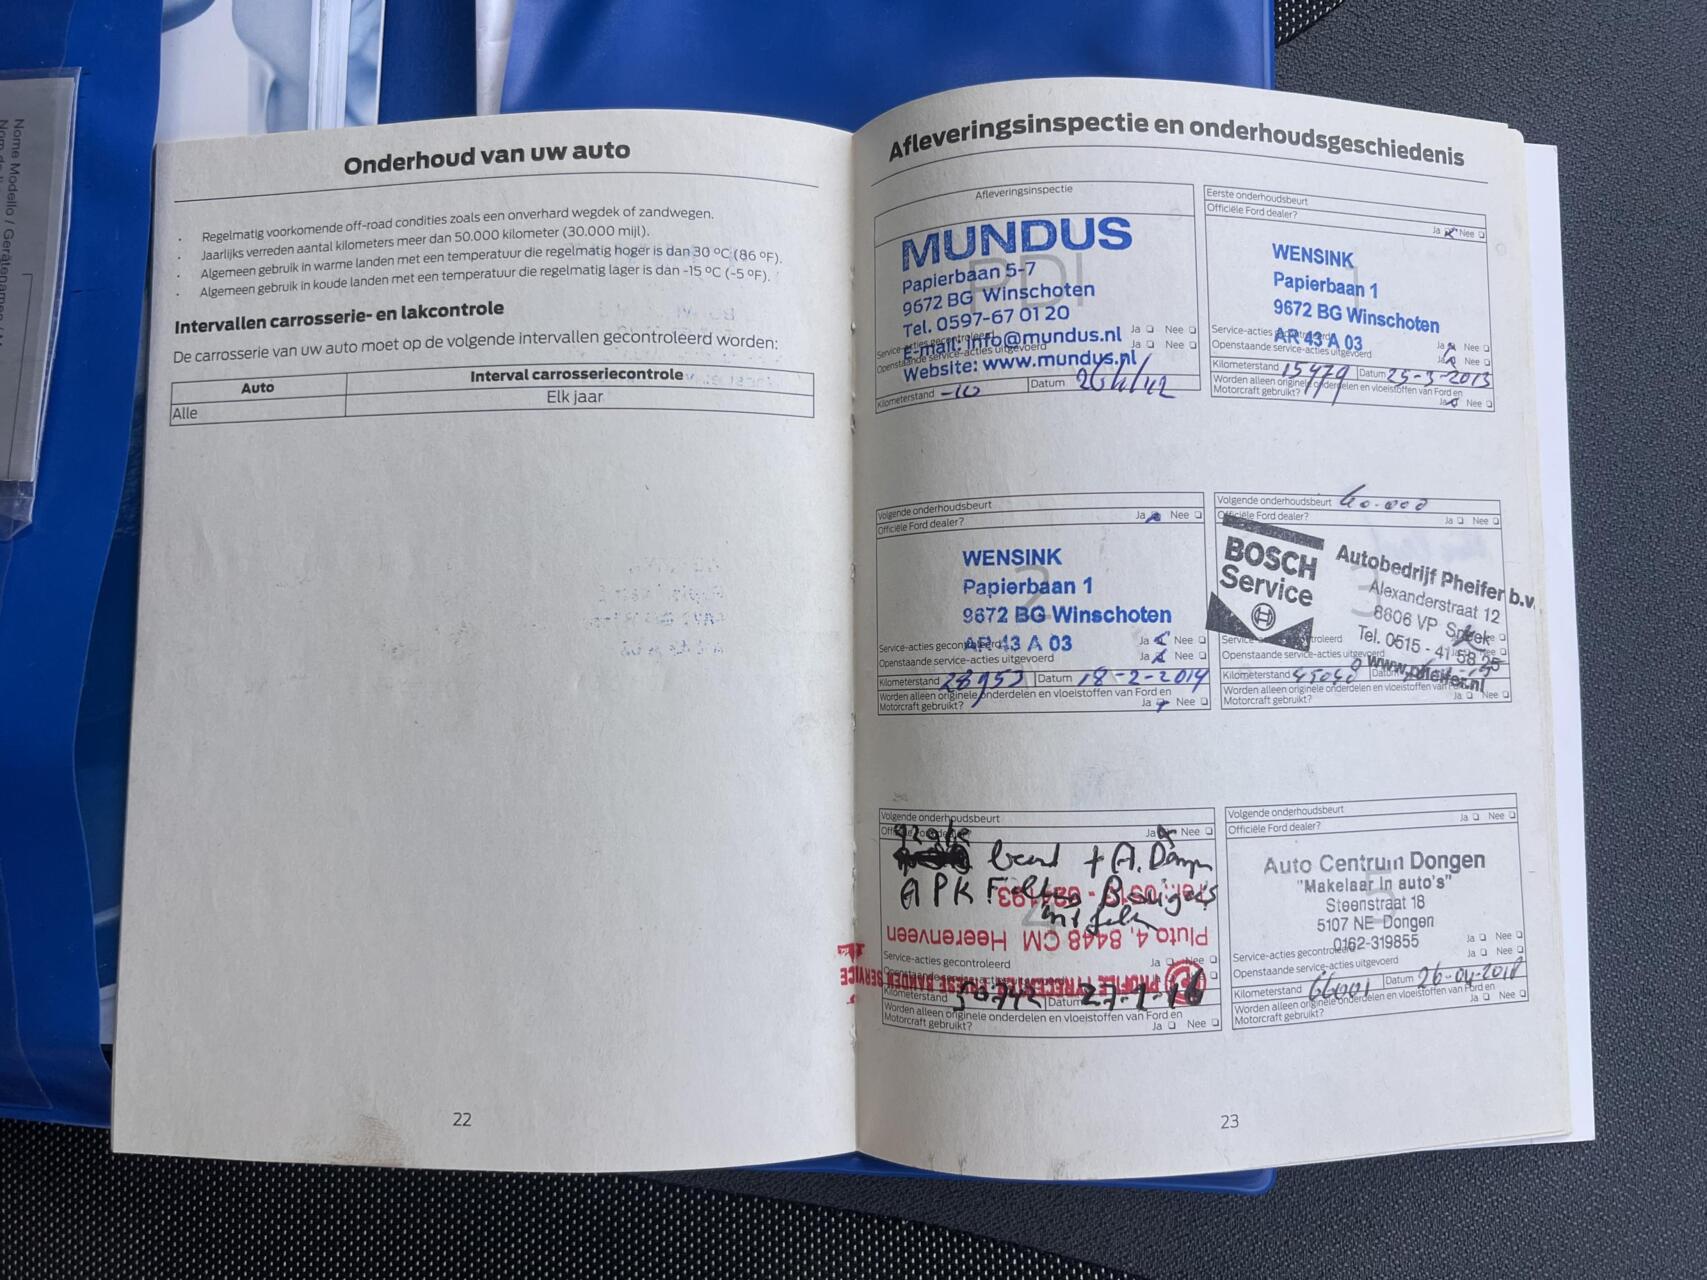 Onderhoud van uw auto
Regelmatig voorkomende off-road condities zoals een onverhard wegdek of zandwegen.
Jaarlijks verreden aantal kilometers meer dan 50.000 kilometer (30.000 mijl).
Algemeen gebruik in warme landen met een temperatuur die regelmatig hoger is dan 30 ºC (86 ºF).
Algemeen gebruik in koude landen met een temperatuur die regelmatig lager is dan -15 ºC (-5 ºF).
Intervallen carrosserie- en lakcontrole
De carrosserie van uw auto moet op de volgende intervallen gecontroleerd worden:
Auto Interval carrosseriecontrole
Alle Elk jaar
22
Afleveringsinspectie en onderhoudsgeschiedenis
Afleveringsinspectie
PDI
MUNDUS
Papierbaan 5-7
9672 BG Winschoten
Tel. 0597-67 01 20
E-mail: info@mundus.nl
Website: www.mundus.nl
Service-acties gecontroleerd Ja Nee
Openstaande service-acties uitgevoerd Ja Nee
Kilometerstand -10 Datum
Eerste onderhoudsbeurt
Officiële Ford dealer?
Ja Nee
1
WENSINK
Papierbaan 1
9672 BG Winschoten
AR 43 A 03
Service-acties gecontroleerd Ja Nee
Openstaande service-acties uitgevoerd Ja Nee
Kilometerstand 15479 Datum 25-3-2013
Worden alleen originele onderdelen en vloeistoffen van Ford en
Motorcraft gebruikt? Ja Nee
Volgende onderhoudsbeurt
Officiële Ford dealer? Ja Nee
2
WENSINK
Papierbaan 1
9672 BG Winschoten
AR 43 A 03
Service-acties gecontroleerd Ja Nee
Openstaande service-acties uitgevoerd Ja Nee
Kilometerstand 28953 Datum 18-2-2014
Worden alleen originele onderdelen en vloeistoffen van Ford en
Motorcraft gebruikt? Ja Nee
Volgende onderhoudsbeurt 60.000
Officiële Ford dealer? Ja Nee
BOSCH
Service
Autobedrijf Pheifer b.v.
Alexanderstraat 12
8606 VP Sneek
Tel. 0515 - 41 58 25
www.pheifer.nl
Service-acties gecontroleerd
Openstaande service-acties uitgevoerd
Kilometerstand Datum
Worden alleen originele onderdelen en vloeistoffen van Ford en
Motorcraft gebruikt? Ja Nee
Volgende onderhoudsbeurt
Officiële Ford dealer? Ja Nee
band + A.
APK
4
Pluto 4, 8448 CM Heerenveen
Service-acties gecontroleerd Ja Nee
Openstaande service-acties uitgevoerd
BANDEN SERVICE
Kilometerstand Datum
Worden alleen originele onderdelen en vloeistoffen van Ford en
Motorcraft gebruikt? Ja Nee
Volgende onderhoudsbeurt
Officiële Ford dealer? Ja Nee
5
Auto Centrum Dongen
"Makelaar in auto's"
Steenstraat 18
5107 NE Dongen
0162-319855
Service-acties gecontroleerd Ja Nee
Openstaande service-acties uitgevoerd Ja Nee
Kilometerstand 66001 Datum 26-04-2018
Worden alleen originele onderdelen en vloeistoffen van Ford en
Motorcraft gebruikt? Ja Nee
23
Nome Modello / Gerätenamen /